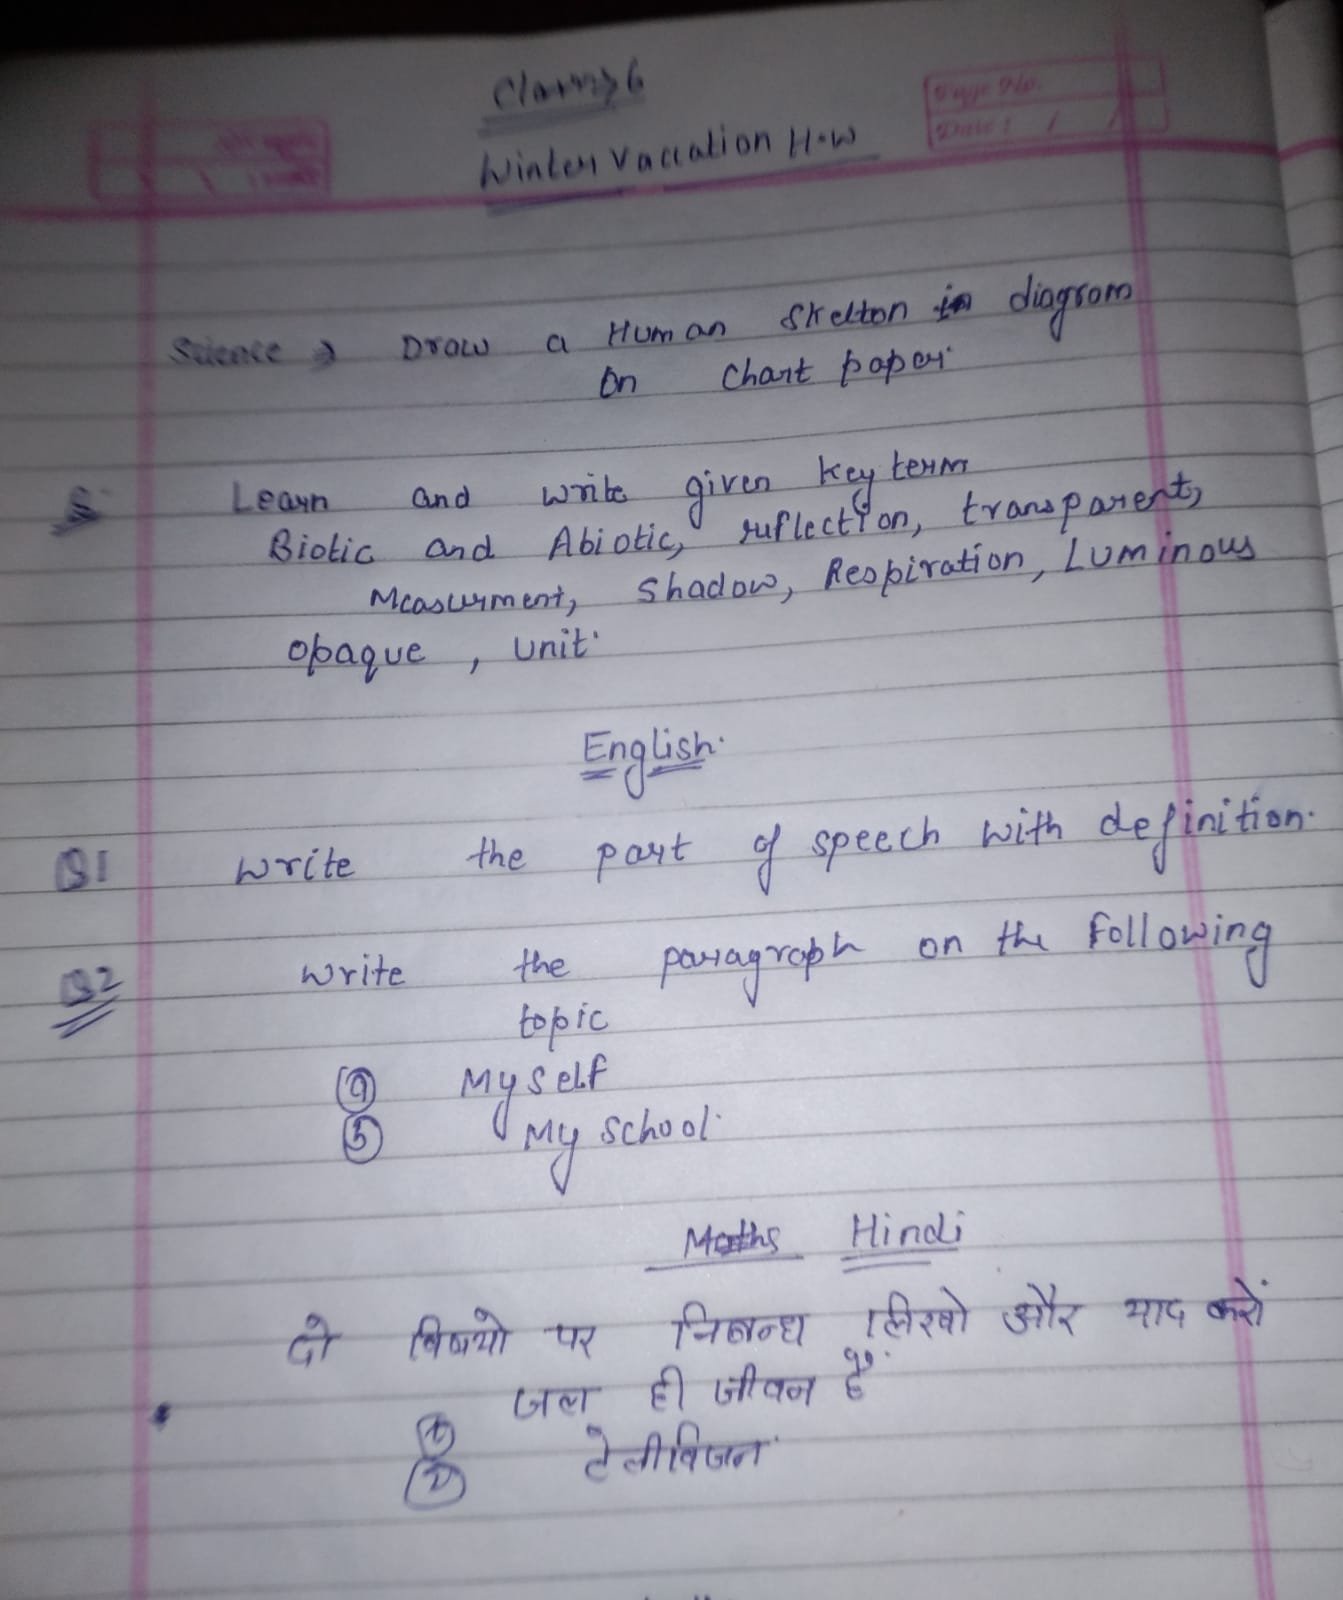 Class 6
Winter Vaccation H.W
Page No.
Date: / /
Science → Draw a Human Skelton in diagram
On Chart paper
Learn and write given key term
Biotic and Abiotic, reflection, transparent,
Measurment, Shadow, Respiration, Luminous
opaque , unit.
English.
Q1 Write the part of speech with definition.
Q2 Write the paragraph on the following
topic
(a) Myself
(b) My School.
Maths Hindi
दो विषयो पर निबन्ध लिखो और याद करों
(1) जल ही जीवन है
(2) टेलीविजन